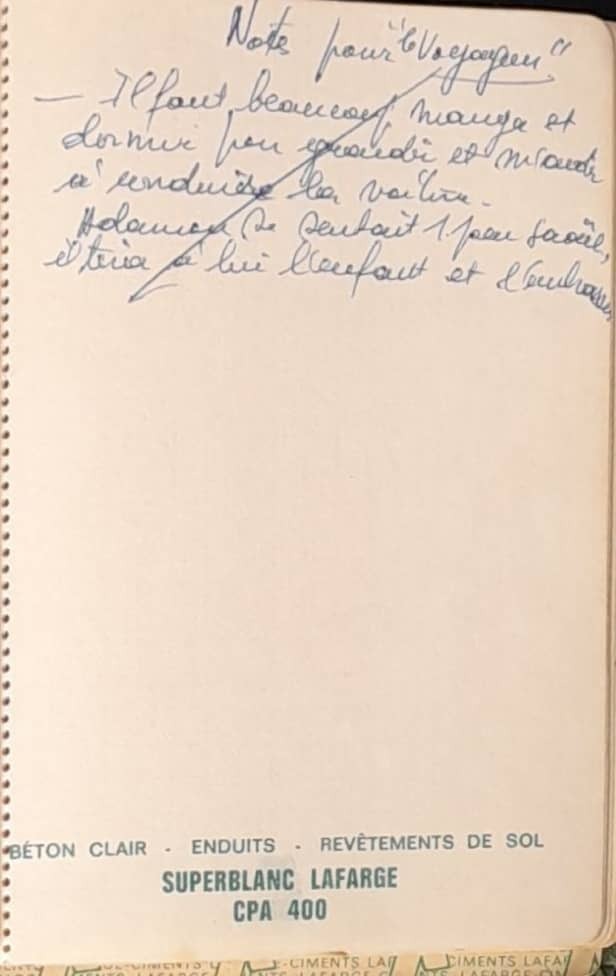 Notes pour "le Voyageur"
— Il faut beaucoup manger et
dormir pour grandir et m'aider
à conduire la voiture.
se sentait 1 peu saoûl,
il tira à lui l'enfant et l'embrassa
BÉTON CLAIR - ENDUITS - REVÊTEMENTS DE SOL
SUPERBLANC LAFARGE
CPA 400
CIMENTS LAFARGE